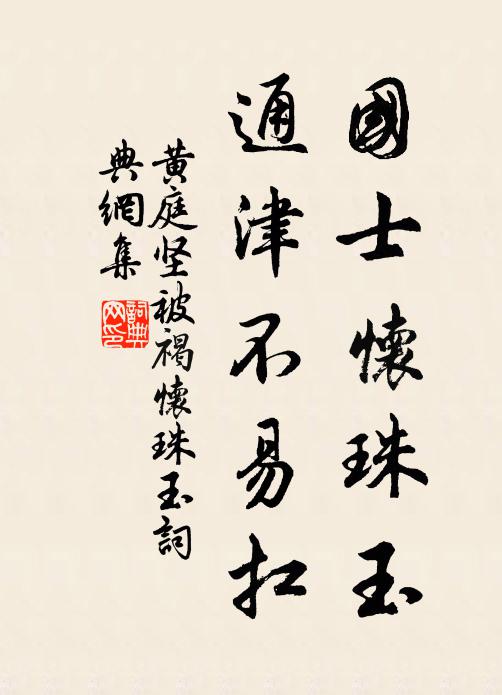 國士懷珠玉
通津不易扛
黄庭坚被褐懷珠玉詞
典網集
詞典
网印